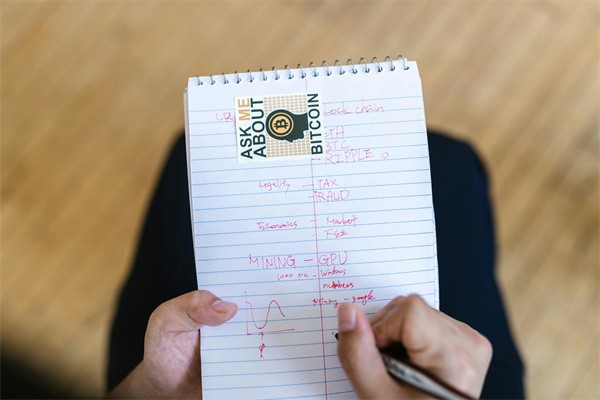 ASK ME
ABOUT
BITCOIN
ock chain
ETH
BTC
RIPPLE
Legality - TAX
FRAUD
Economics - Market
MINING - GPU
Windows
numbers
mining - google